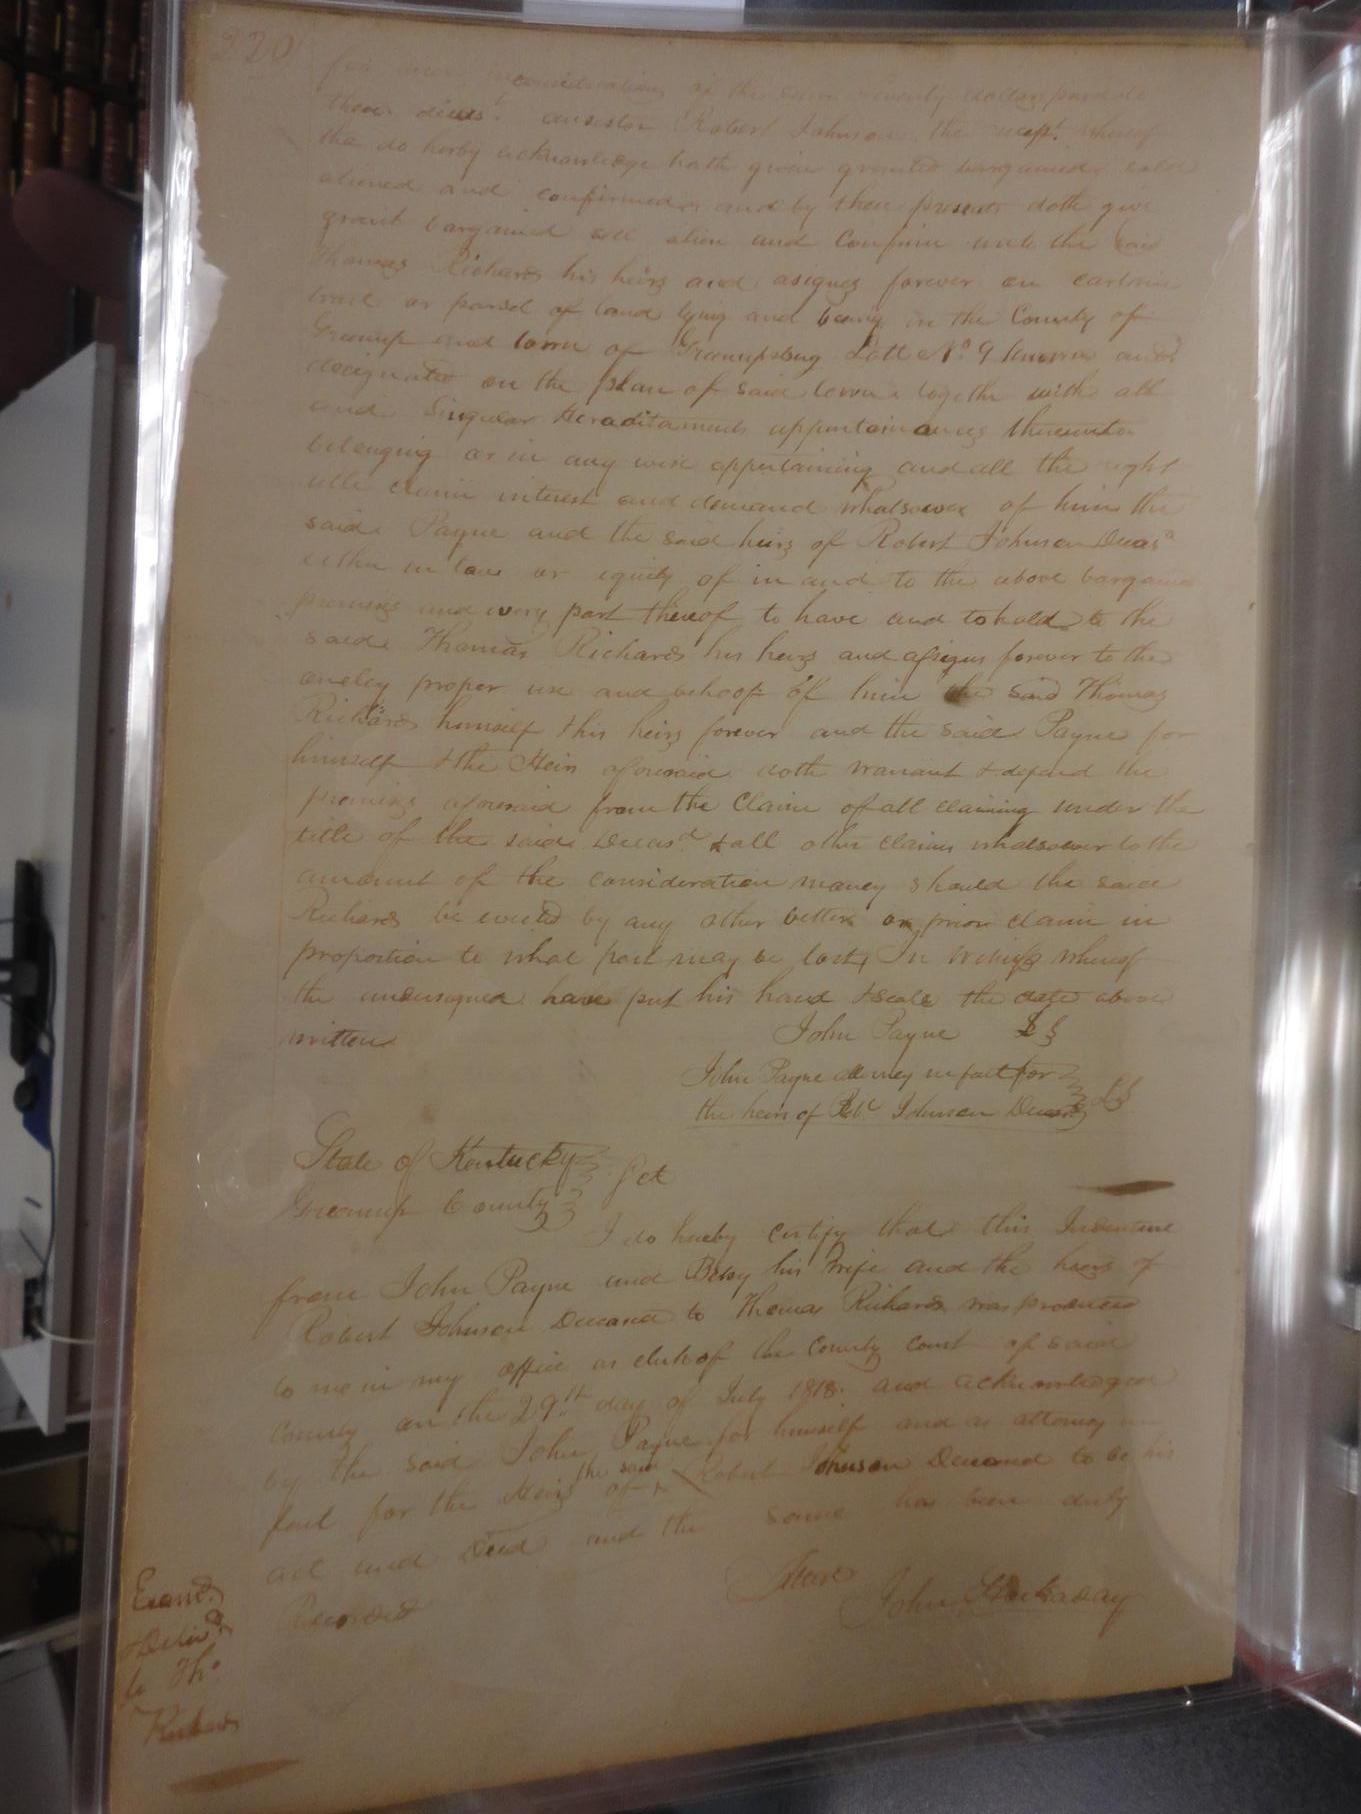 220
for and in consideration of the sum seventy dollars paid to
them decst. ancestor Robert Johnson the recpt. whereof
the do herby acknowledge hath given granted bargained sold
aliened and confirmed and by these presents doth give
grant bargained sell alien and Confirm unto the said
Thomas Richards his heirs and asignes forever on certain
tract or parsel of land lying and being in the County of
Greenup and town of Greenupsburg Lott No. 9 known and
designated on the plan of said town together with all
and Singular Heraditaments uppertainances thereunto
belonging or in any wise appertaining and all the right
title claim interest and demand whatsoever of him the
said Payne and the said heirs of Robert Johnson Decasd
either in law or equity of in and to the above bargaine
premises and every part thereof to have and to hold to the
said Thomas Richards his heirs and assigns forever to the
onely proper use and behoof off him the said Thomas
Richards himself & his heirs forever and the said Payne for
himself & the Heirs aforesaid doth warrant & defend the
premises aforesaid from the Claim of all claiming under the
title of the said Decasd. & all other claims whatsoever to the
amount of the consideration money should the said
Richards be evicted by any other better or prior claim in
proportion to what part may be lost, In Witness whereof
the undersigned have put his hand & seale the date above
written
John Payne LS
John Payne attorney in fact for
the heirs of Robt Johnson Decasd LS
State of Kentucky
Greenup County Sct
I do hereby certify that this Indenture
from John Payne and Betsy his Wife and the heirs of
Robert Johnson Deceased to Thomas Richards was produced
to me in my office as clerk of the County Court of said
County on the 29th day of July 1818. and acknowledged
by the said John Payne for himself and as attorney in
fact for the Heirs of the said Robert Johnson Deceased to be his
act and Deed and the same has been duly
Recorded
Attest
John Hockaday
Examd.
& Delivd.
to Tho
Richards